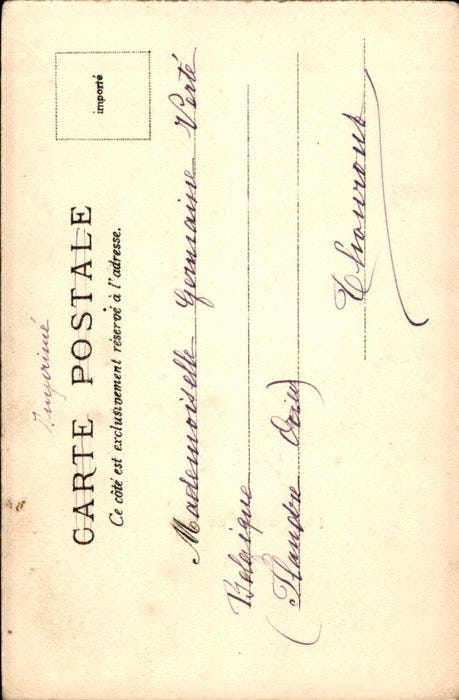 Imprimé
CARTE POSTALE
Ce côté est exclusivement réservé à l'adresse.
importé
Mademoiselle Germaine Verté
Belgique
(Flandre Occid)
Thourout